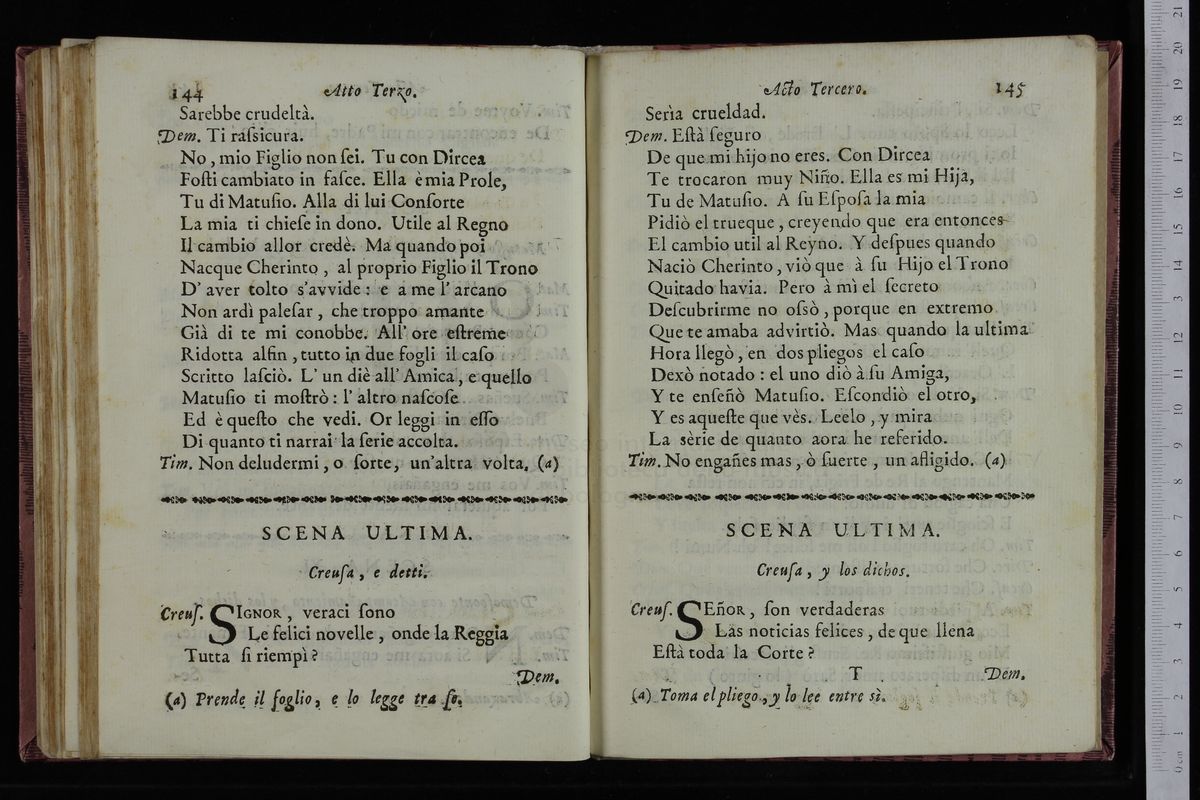 144 Atto Terzo.
Sarebbe crudeltà.
Dem. Ti raſsicura.
No, mio Figlio non ſei. Tu con Dircea
Foſti cambiato in faſce. Ella è mia Prole,
Tu di Matuſio. Alla di lui Conſorte
La mia ti chieſe in dono. Utile al Regno
Il cambio allor credè. Ma quando poi
Nacque Cherinto, al proprio Figlio il Trono
D' aver tolto s'avvide: e a me l' arcano
Non ardì paleſar, che troppo amante
Già di te mi conobbe. All' ore eſtreme
Ridotta alfin, tutto in due fogli il caſo
Scritto laſciò. L' un diè all' Amica, e quello
Matuſio ti moſtrò: l' altro naſcoſe
Ed è queſto che vedi. Or leggi in eſſo
Di quanto ti narrai la ſerie accolta.
Tim. Non deludermi, o ſorte, un'altra volta. (a)
SCENA ULTIMA.
Creuſa, e detti.
Creuſ. SIGNOR, veraci ſono
Le felici novelle, onde la Reggia
Tutta ſi riempì?
Dem.
(a) Prende il foglio, e lo legge tra ſe.
Acto Tercero. 145
Serìa crueldad.
Dem. Eſtà ſeguro
De que mi hijo no eres. Con Dircea
Te trocaron muy Niño. Ella es mi Hija,
Tu de Matuſio. A ſu Eſpoſa la mia
Pidiò el trueque, creyendo que era entonces
El cambio util al Reyno. Y deſpues quando
Naciò Cherinto, viò que à ſu Hijo el Trono
Quitado havia. Pero à mì el ſecreto
Deſcubrirme no oſsò, porque en extremo
Que te amaba advirtiò. Mas quando la ultima
Hora llegò, en dos pliegos el caſo
Dexò notado: el uno diò à ſu Amiga,
Y te enſeñò Matuſio. Eſcondiò el otro,
Y es aqueſte que vès. Leelo, y mira
La sèrie de quanto aora he referido.
Tim. No engañes mas, ò ſuerte, un afligido. (a)
SCENA ULTIMA.
Creuſa, y los dichos.
Creuſ. SEñOR, ſon verdaderas
Las noticias felices, de que llena
Eſtà toda la Corte?
T Dem.
(a) Toma el pliego, y lo lee entre sì.